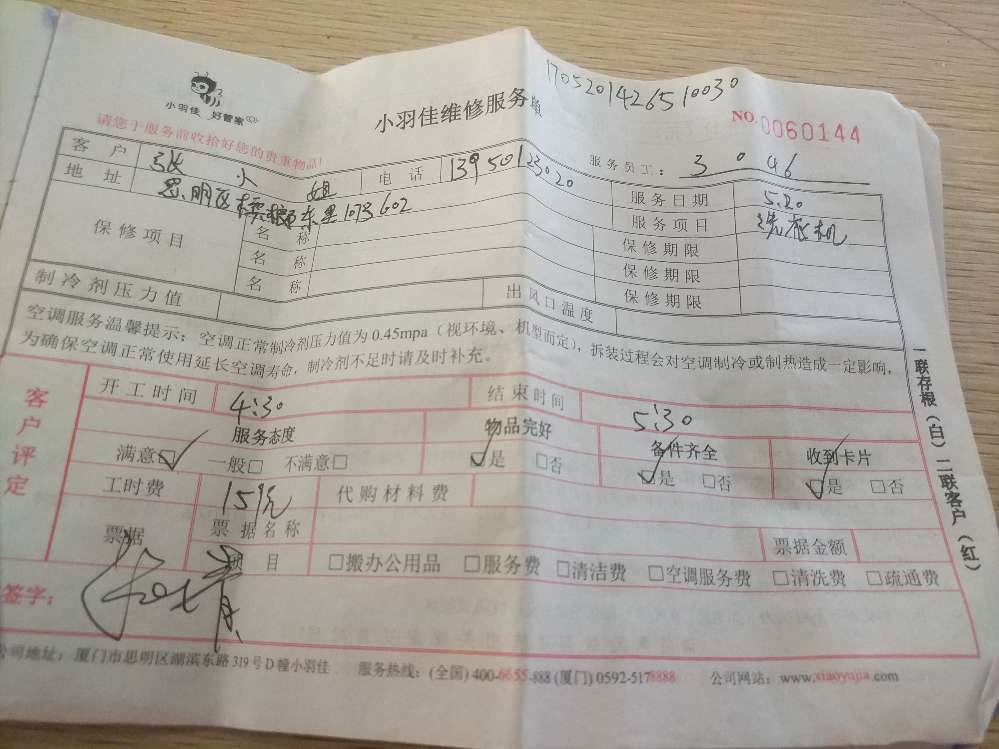 小羽佳 好管家
17052014265 10030
小羽佳维修服务
NO.0060144
请您于服务前收拾好您的贵重物品!
服务员工: 3046
客户 张小姐 电话 13950123020 服务日期 5.20
地址 思明区 东里 602 服务项目
保修项目 名称 保修期限
名称 保修期限
名称 保修期限
制冷剂压力值 出风口温度
空调服务温馨提示: 空调正常制冷剂压力值为0.45mpa(视环境、机型而定), 拆装过程会对空调制冷或制热造成一定影响,
为确保空调正常使用延长空调寿命, 制冷剂不足时请及时补充。
客户评定
开工时间 4:30 结束时间 5:30
服务态度 物品完好 备件齐全 收到卡片
满意☑ 一般□ 不满意□ ☑是 □否 ☑是 □否 ☑是 □否
工时费 15元 代购材料费
票据 票据名称 票据金额
项目 □搬办公用品 □服务费 □清洁费 □空调服务费 □清洗费 □疏通费
签字:
公司地址: 厦门市思明区湖滨东路319号D幢小羽佳 服务热线: (全国) 400-6655-888 (厦门) 0592-5178888 公司网站: www.xiaoyujia.com
一联存根(白) 二联客户(红)